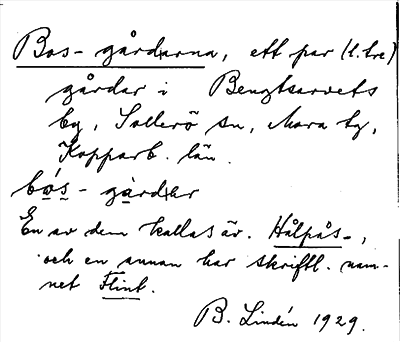 Bos-gårdarna, ett par (l. tre)
gårdar i Bengtsarvets
by, Sollerö sn, Mora tg,
Kopparb. län.
bo̱s-ga̱rdar
En av dem kallas äv. Hålpås-,
och en annan har skriftl. nam-
net Flint.
B. Lindén 1929.